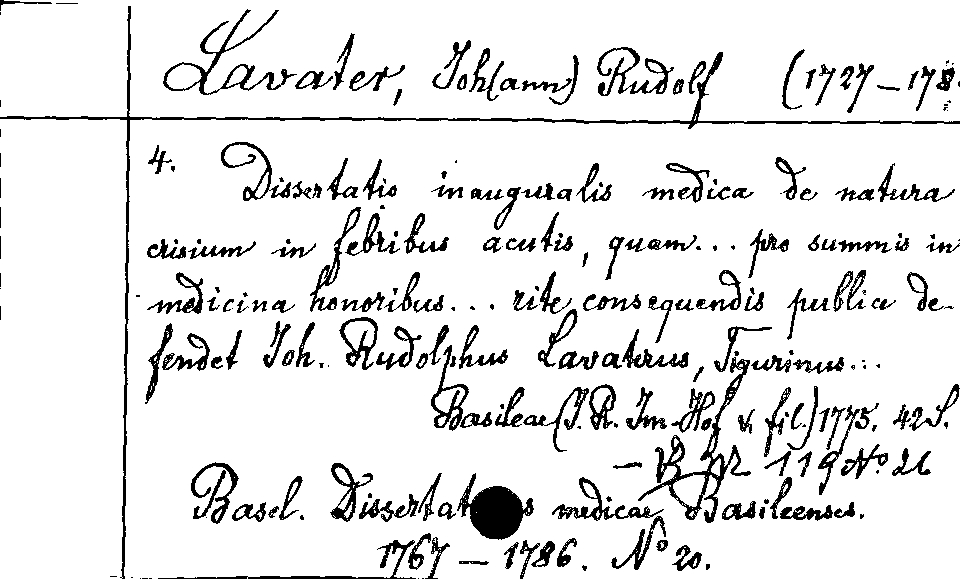 Lavater, Joh(ann) Rudolf (1727 – 178
4. Dissertatio inauguralis medica de natura
crisium in febribus acutis, quam... pro summis in
medicina honoribus... rite consequendis publice de-
fendet Joh. Rudolphus Lavaterus, Tigurinus...
Basileae (J. R. Im-Hof & fil.) 1775. 42 S.
– 119 No 26
Basel. medicae Basileenses.
1767 – 1786. No 20.